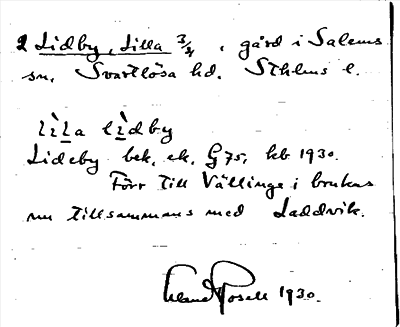 2 Lidby, Lilla 3/4, gård i Salems
sn, Svartlösa hd. Sthlms l.
lìla lìdby
Lideby bek. ek. G 75, kb 1930.
Förr till Vällinge i brukas
nu tillsammans med Laddvik.
Rosell 1930.